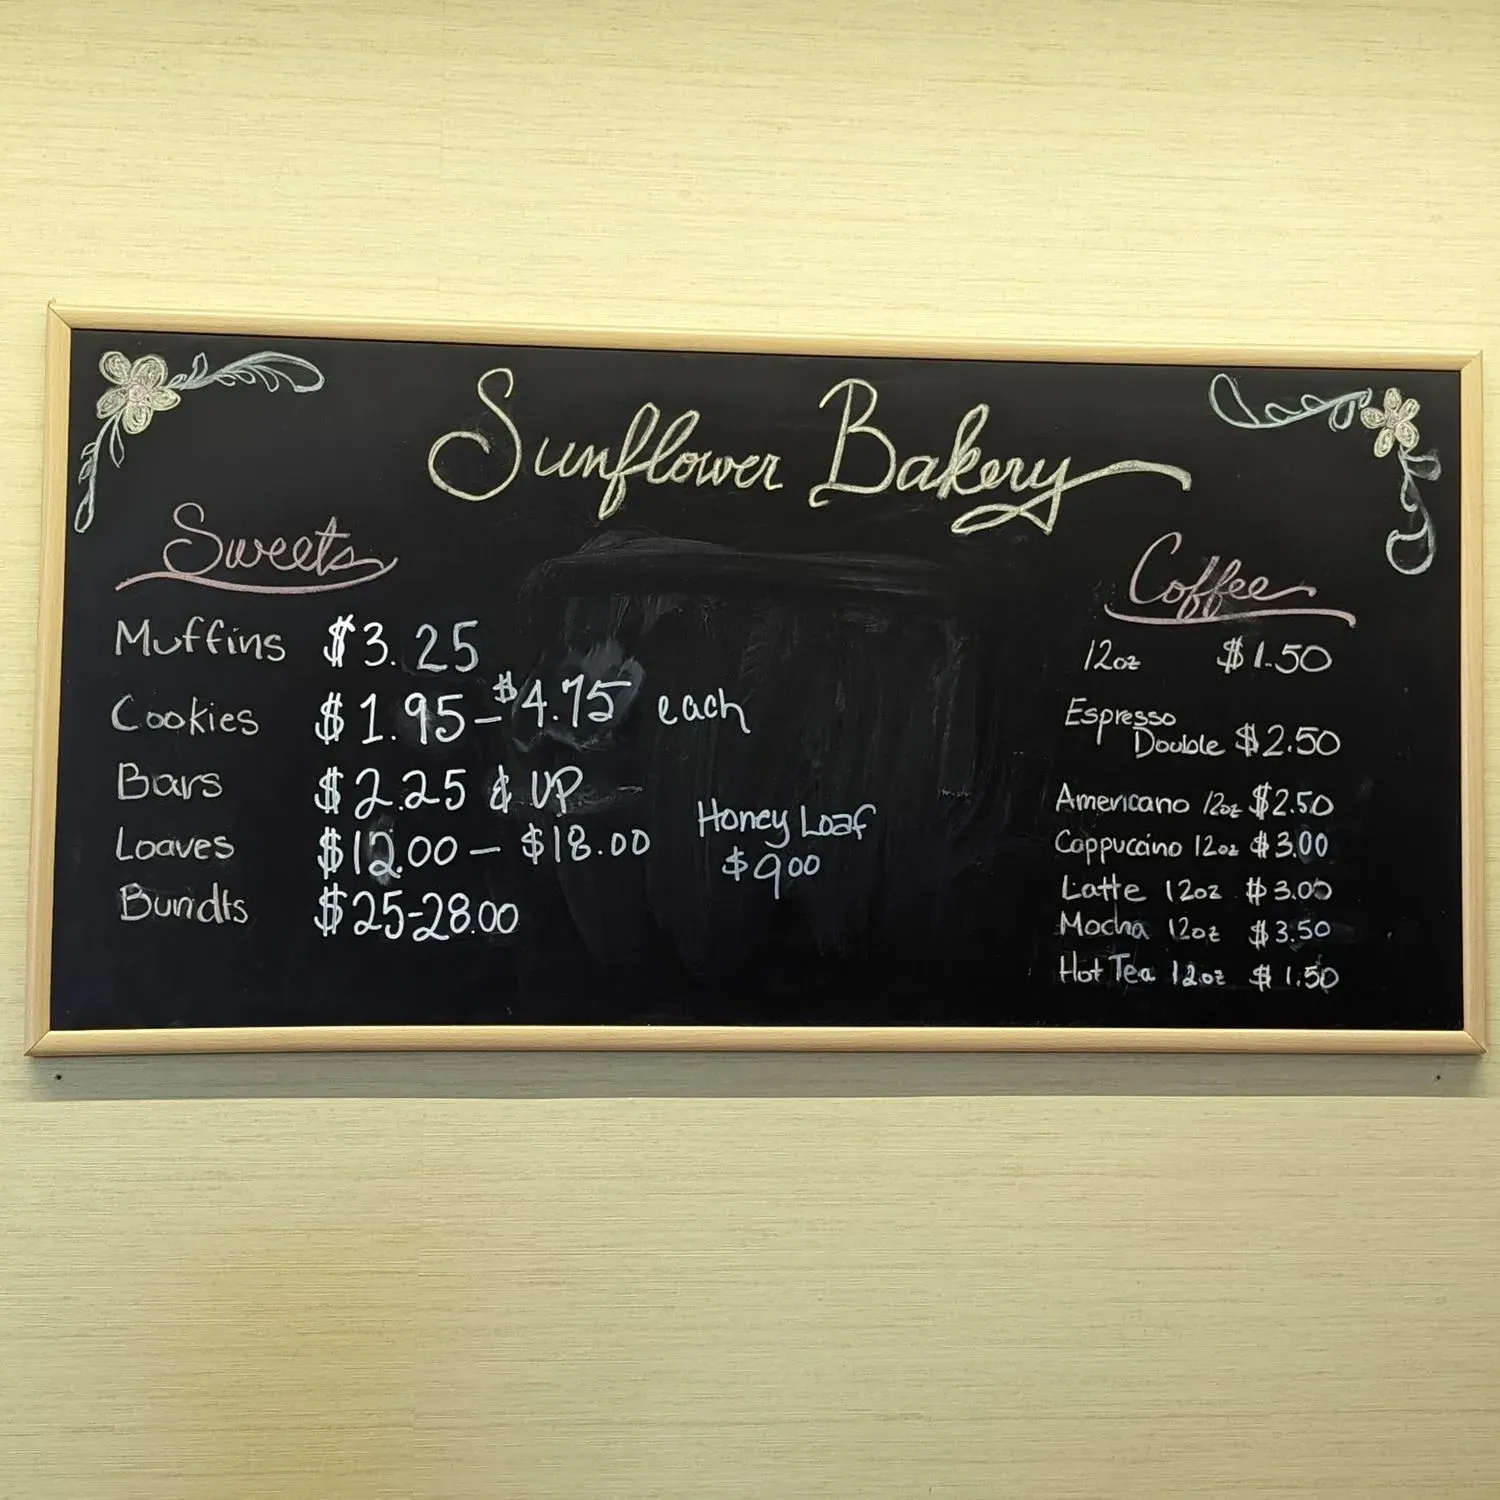 Sunflower Bakery
Sweets
Muffins $3.25
Cookies $1.95-$4.75 each
Bars $2.25 & UP
Loaves $12.00 - $18.00
Bundts $25-28.00
Honey Loaf
$9.00
Coffee
12oz $1.50
Espresso
Double $2.50
Americano 12oz $2.50
Cappuccino 12oz $3.00
Latte 12oz $3.00
Mocha 12oz $3.50
Hot Tea 12oz $1.50